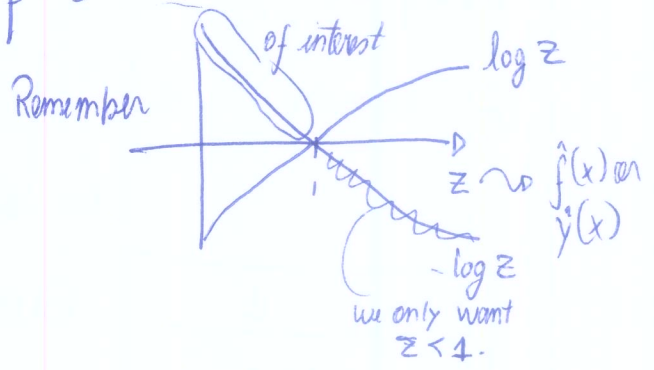 of interest
log z
Remember
z ~> f̂(x) or
ŷ(x)
1
- log z
we only want
z < 1.